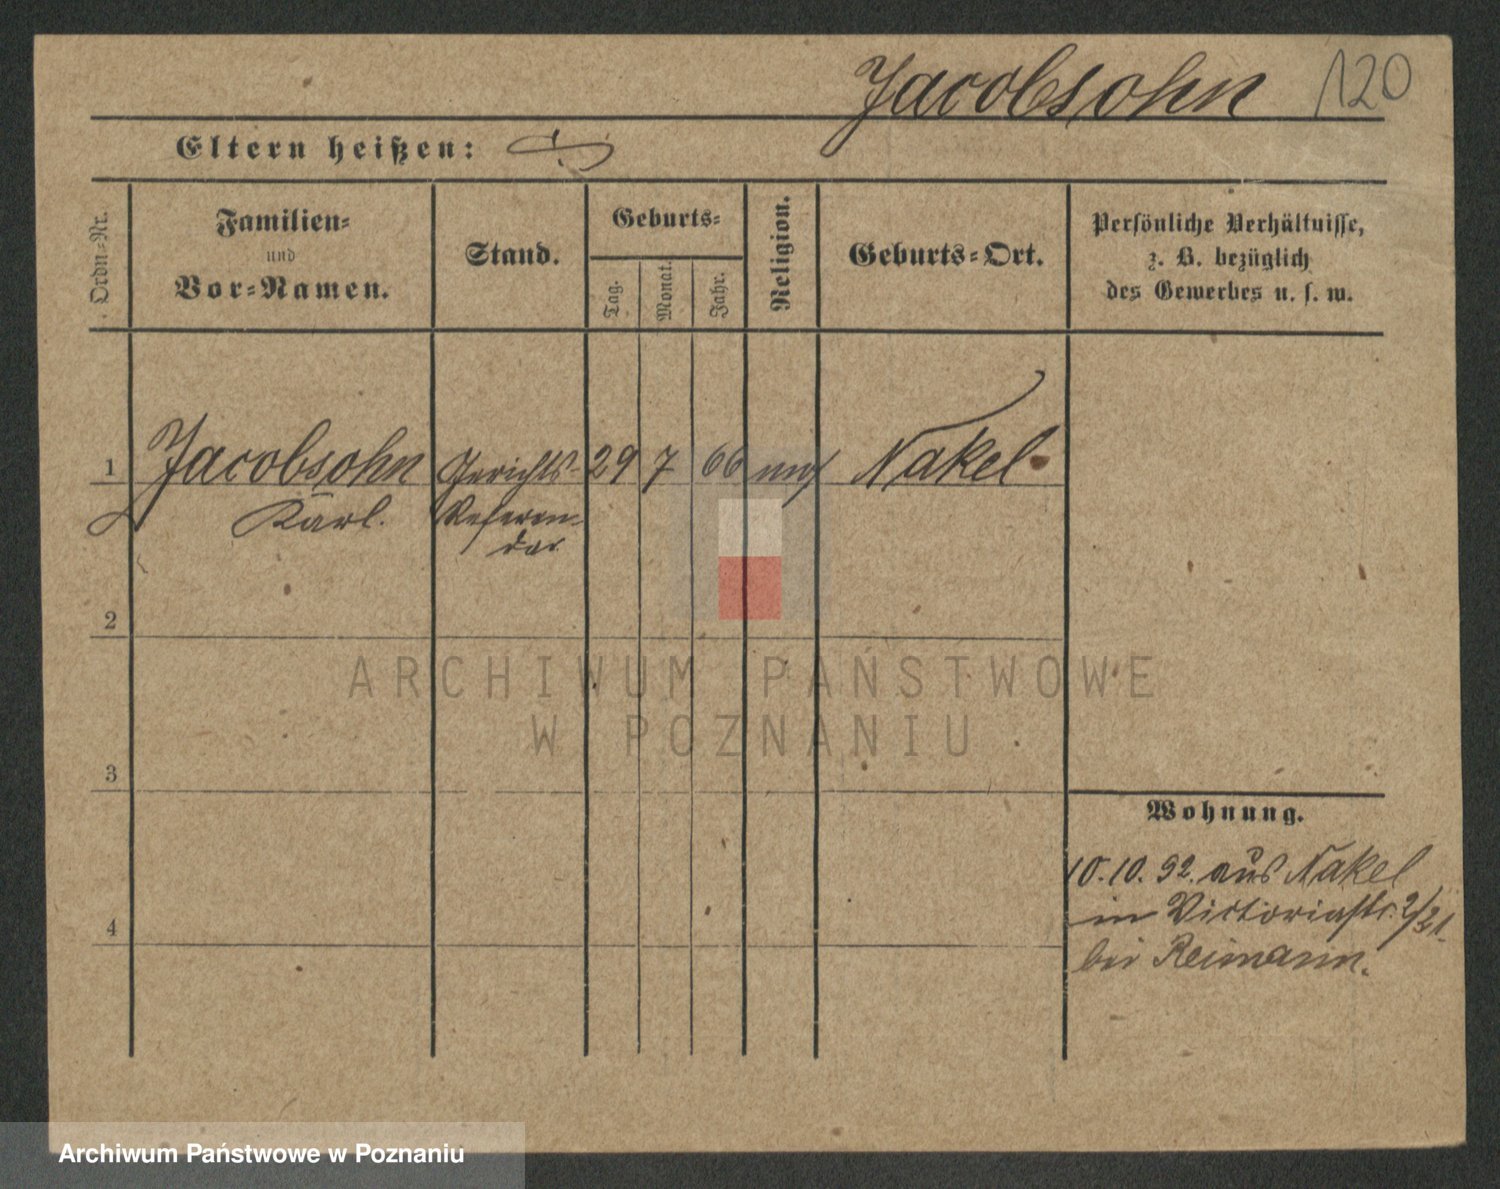 Jacobsohn 120
Eltern heißen:
Ordn=Nr.
Familien=
und
Vor=Namen.
Stand.
Geburts=
Tag.
Monat.
Jahr.
Religion.
Geburts=Ort.
Persönliche Verhältnisse,
z. B. bezüglich
des Gewerbes u. s. w.
1 Jacobsohn Gerichts- 29 7 66 mos Nakel
Karl. Referen-
dar
2
ARCHIWUM PAŃSTWOWE
W POZNANIU
3
Wohnung.
10.10.92. aus Nakel
in Victoriastr. 2/21
4
bei Reimann.
Archiwum Państwowe w Poznaniu